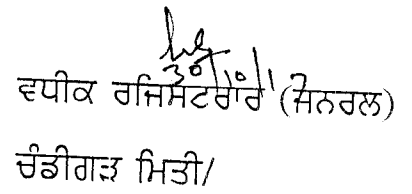 ਵਧੀਕ ਰਜਿਸਟਰਾਰ (ਜਨਰਲ)
ਚੰਡੀਗੜ ਮਿਤੀ/